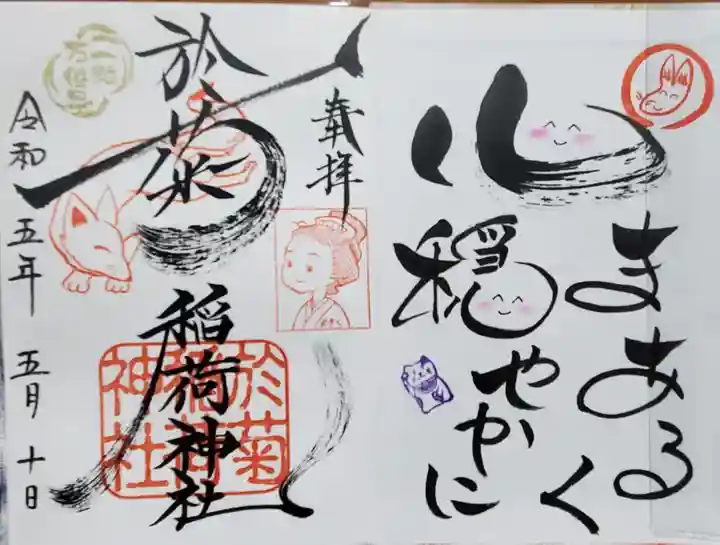 心
まあるく
穏やかに
奉拝
於菊
稲荷神社
於菊
稲荷
神社
令和五年五月十日